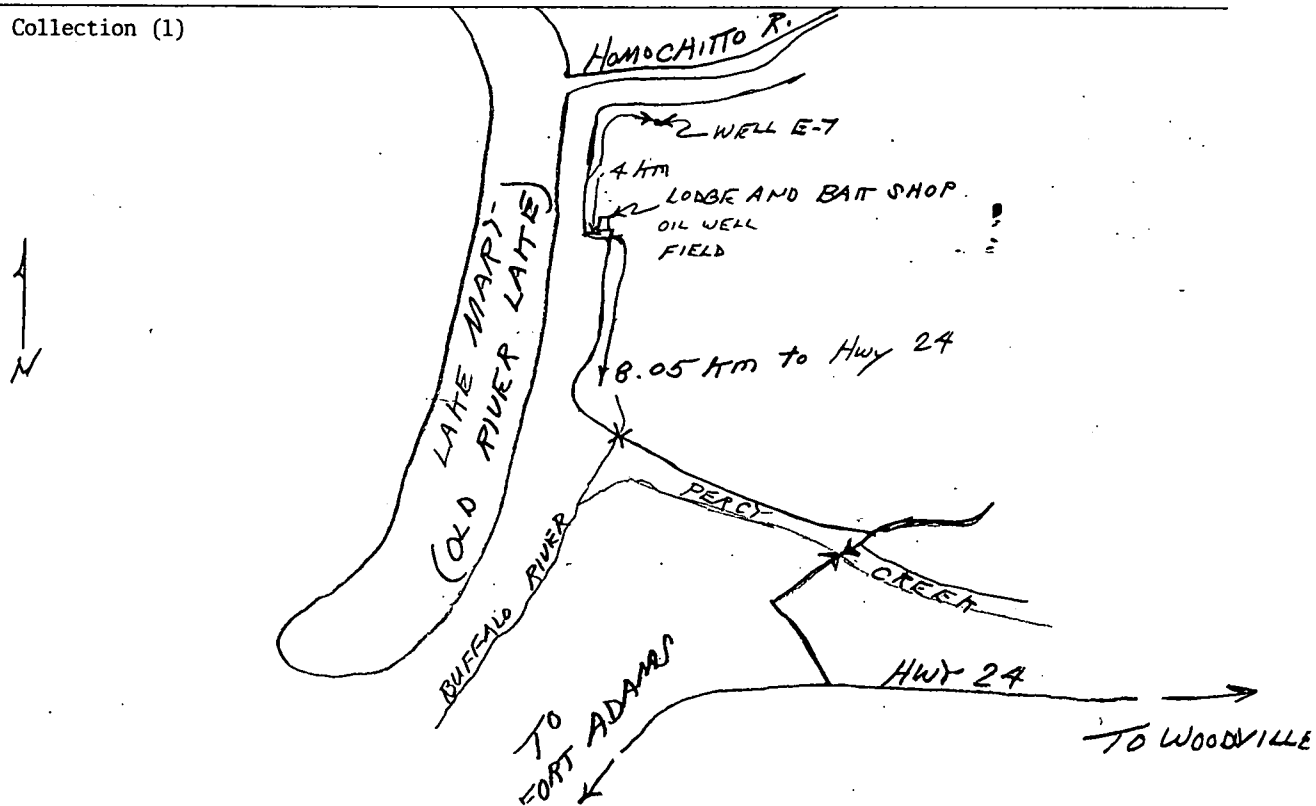 Collection (1)
HOMOCHITTO R.
WELL E-7
.4 Km
LODGE AND BAIT SHOP
OIL WELL
FIELD
LAKE MARY-
(OLD RIVER LAKE)
N
8.05 Km to Hwy 24
PERCY
CREEK
BUFFALO RIVER
HWY 24
TO
FORT ADAMS
TO WOODVILLE